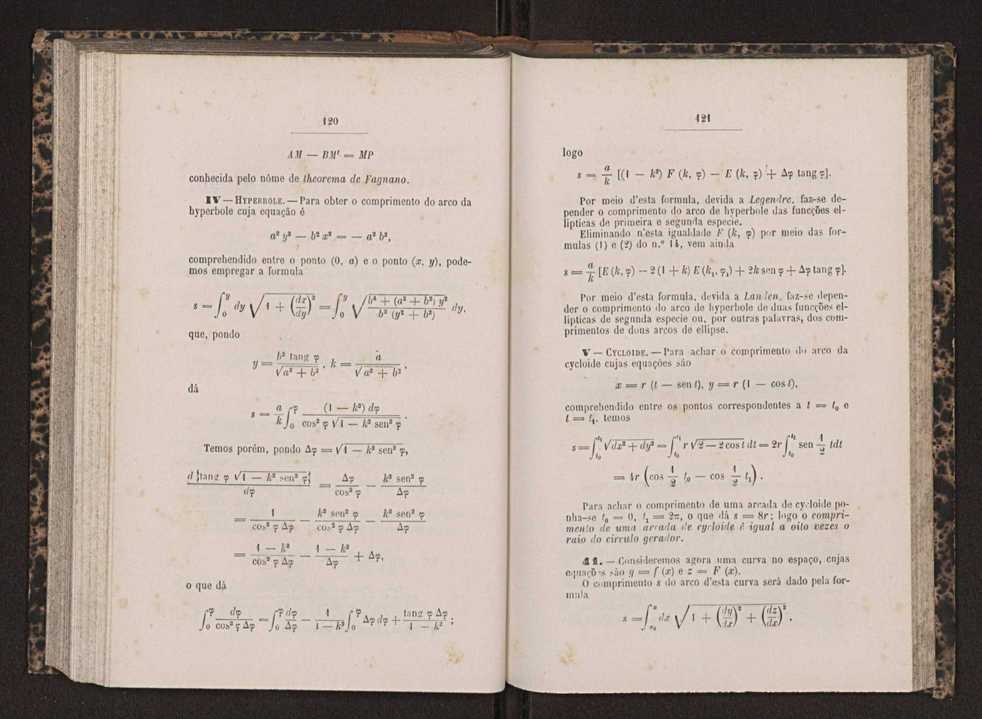 120
AM — BM' = MP
conhecida pelo nôme de theorema de Fagnano.
IV — HYPERBOLE. — Para obter o comprimento do arco da
hyperbole cuja equação é
a² y² — b² x² = — a² b²,
comprehendido entre o ponto (0, a) e o ponto (x, y), pode-
mos empregar a formula
s = ∫₀^y dy √(1 + (dx/dy)²) = ∫₀^y √((b⁴ + (a² + b²) y²) / (b² (y² + b²))) dy,
que, pondo
y = b² tang φ / √(a² + b²), k = a / √(a² + b²),
dá
s = a/k ∫₀^φ (1 — k²) dφ / (cos² φ √(1 — k² sen² φ)).
Temos porém, pondo Δφ = √(1 — k² sen² φ),
d {tang φ √(1 — k² sen² φ)} / dφ = Δφ / cos² φ — k² sen² φ / Δφ
= 1 / (cos² φ Δφ) — k² sen² φ / (cos² φ Δφ) — k² sen² φ / Δφ
= (1 — k²) / (cos² φ Δφ) — (1 — k²) / Δφ + Δφ,
o que dá
∫₀^φ dφ / (cos² φ Δφ) = ∫₀^φ dφ / Δφ — 1 / (1 — k²) ∫₀^φ Δφ dφ + tang φ Δφ / (1 — k²);
121
logo
s = a/k [(1 — k²) F (k, φ) — E (k, φ) + Δφ tang φ].
Por meio d'esta formula, devida a Legendre, faz-se de-
pender o comprimento do arco de hyperbole das funcções el-
lipticas de primeira e segunda especie.
Eliminando n'esta igualdade F (k, φ) por meio das for-
mulas (1) e (2) do n.º 14, vem ainda
s = a/k [E (k, φ) — 2 (1 + k) E (k₁, φ₁) + 2k sen φ + Δφ tang φ].
Por meio d'esta formula, devida a Landen, faz-se depen-
der o comprimento do arco de hyperbole de duas funcções el-
lipticas de segunda especie ou, por outras palavras, dos com-
primentos de dous arcos de ellipse.
V — CYCLOIDE. — Para achar o comprimento do arco da
cycloide cujas equações são
x = r (t — sen t), y = r (1 — cos t),
comprehendido entre os pontos correspondentes a t = t₀ e
t = t₁, temos
s = ∫_{t₀}^{t₁} √(dx² + dy²) = ∫_{t₀}^{t₁} r √(2 — 2 cos t) dt = 2r ∫_{t₀}^{t₁} sen 1/2 t dt
= 4r (cos 1/2 t₀ — cos 1/2 t₁).
Para achar o comprimento de uma arcada de cycloide po-
nha-se t₀ = 0, t₁ = 2π, o que dá s = 8r; logo o compri-
mento de uma arcada de cycloide é igual a oito vezes o
raio do circulo gerador.
11. — Consideremos agora uma curva no espaço, cujas
equações são y = f (x) e z = F (x).
O comprimento s do arco d'esta curva será dado pela for-
mula
s = ∫_{x₀}^x dx √(1 + (dy/dx)² + (dz/dx)²).